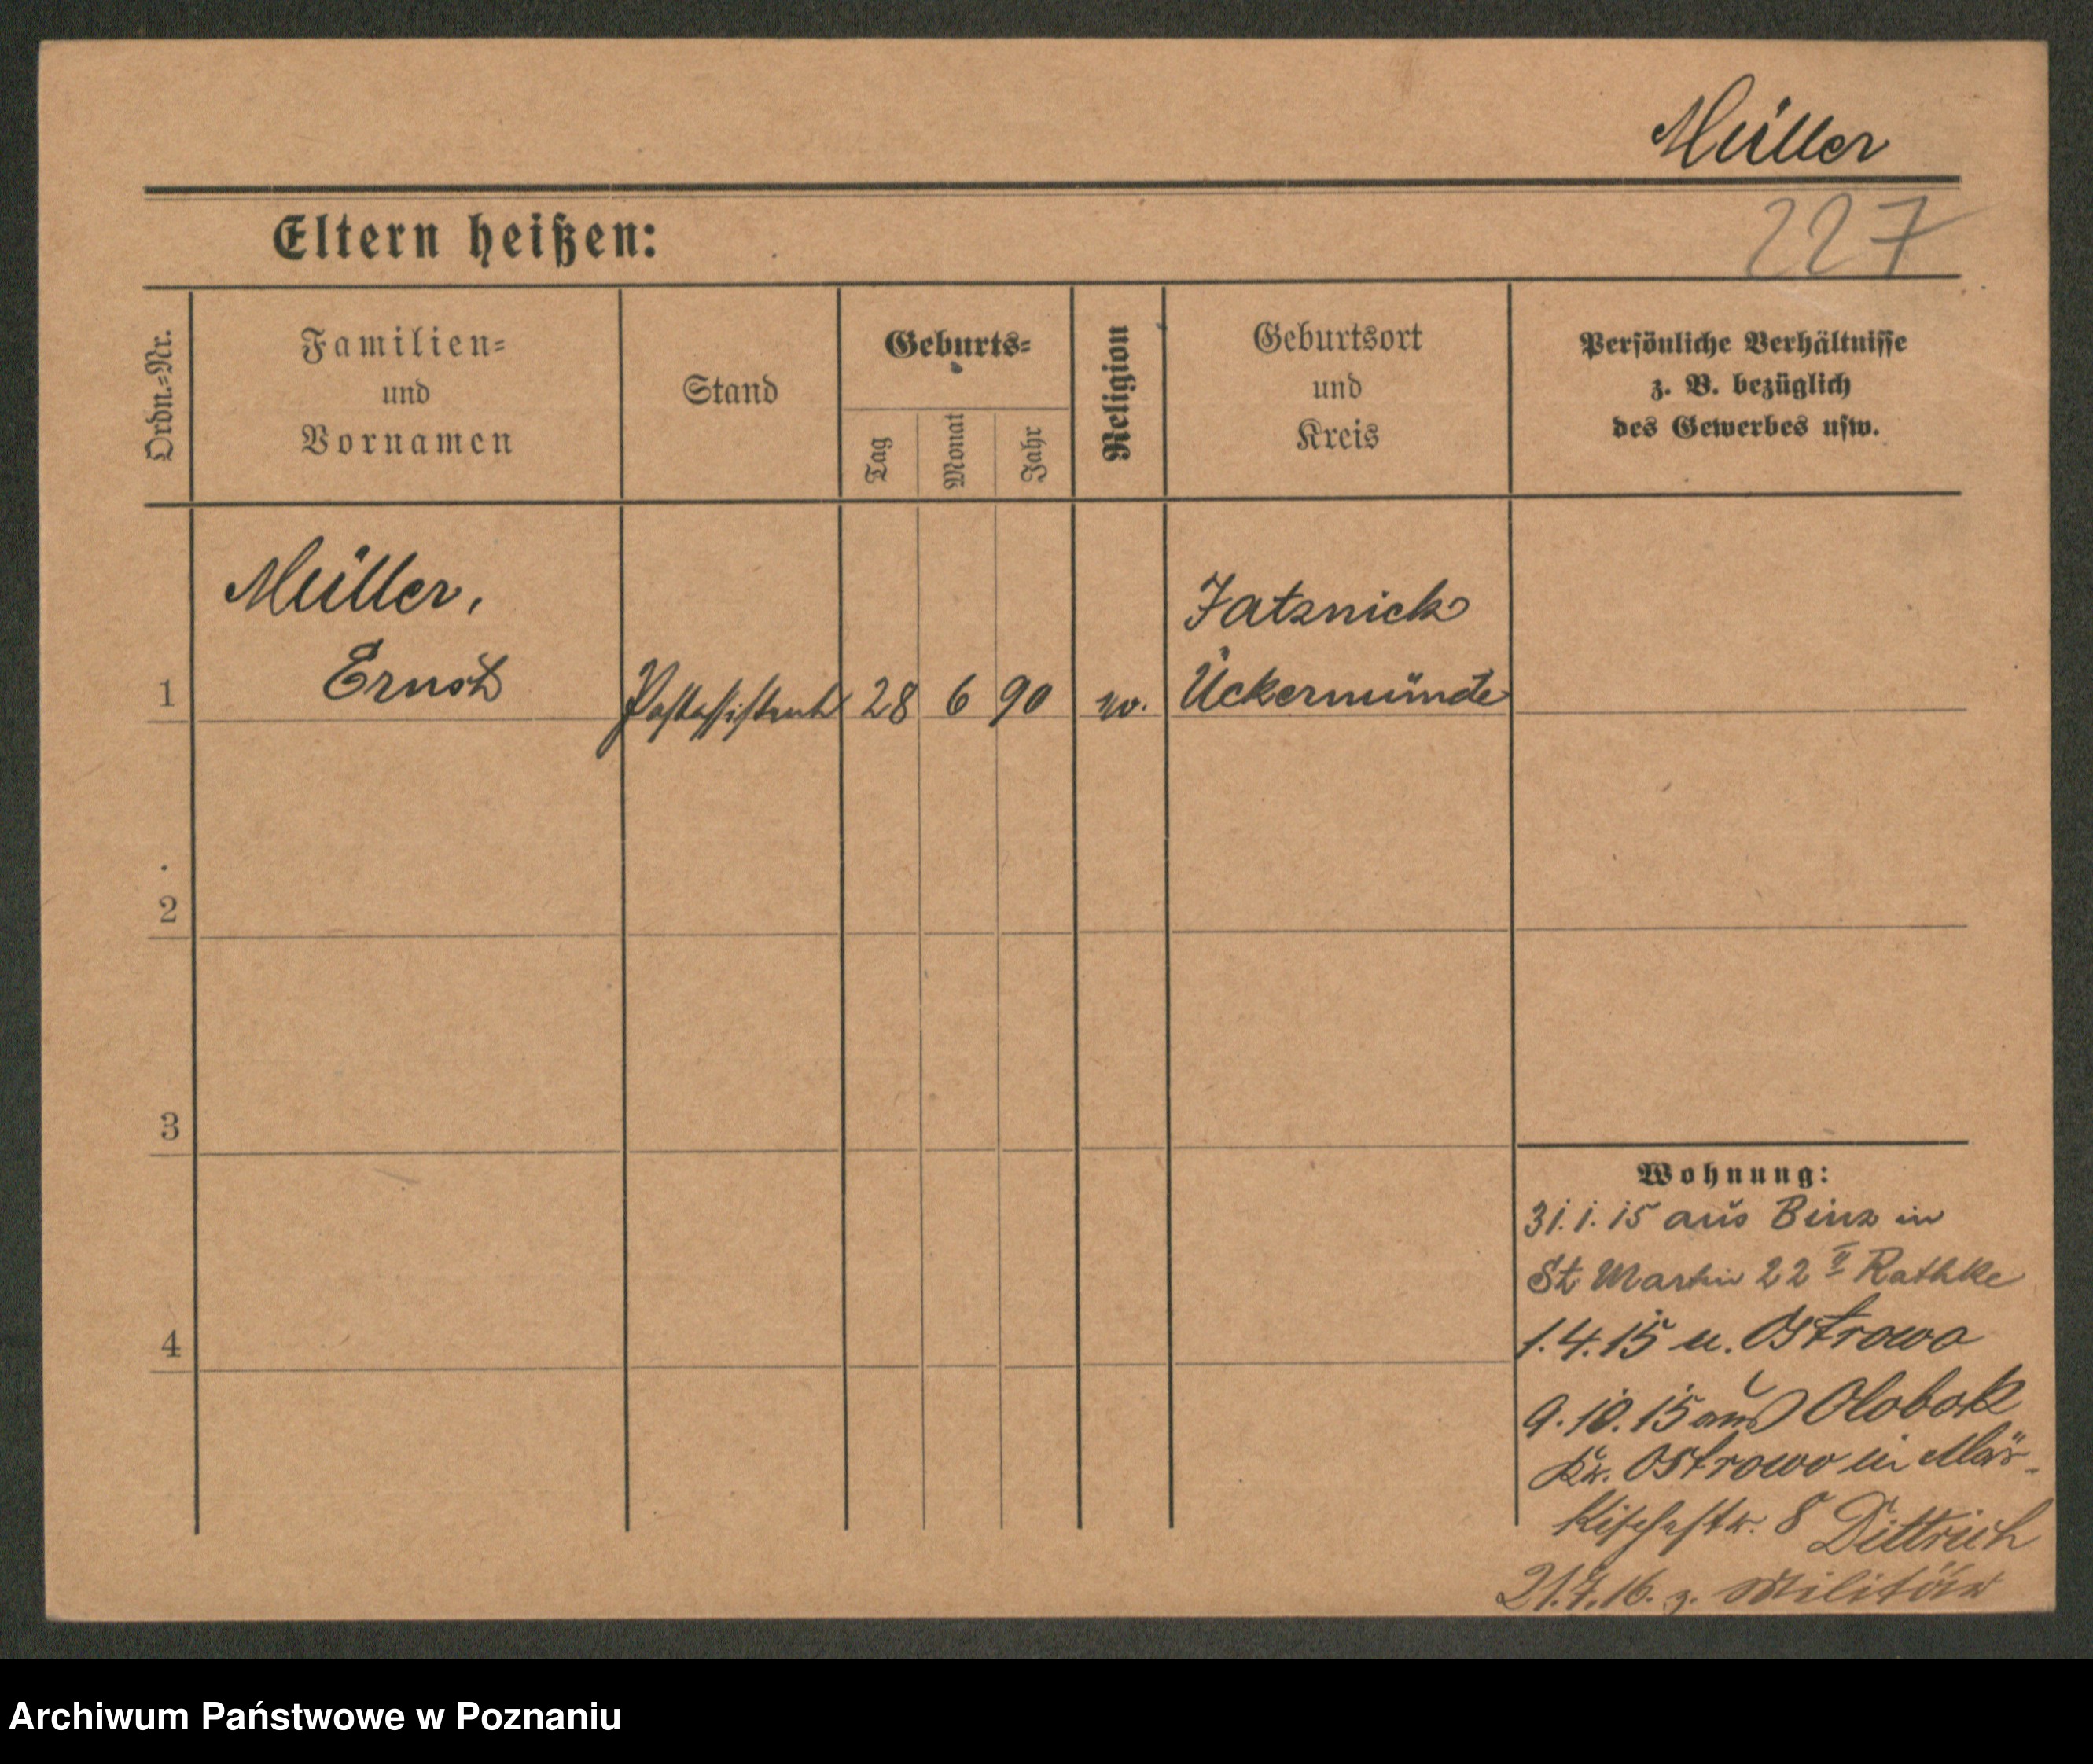 Müller
227
Eltern heißen:
Ordn.-Nr.
Familien-
und
Vornamen
Stand
Geburts-
Tag
Monat
Jahr
Religion
Geburtsort
und
Kreis
Persönliche Verhältnisse
z. B. bezüglich
des Gewerbes usw.
1
Müller,
Ernst
Postassistent
28
6
90
ev.
Jatznick
Ückermünde
2
3
4
Wohnung:
31.1.15 aus Binz in
St Martin 22 II Rathke
1.4.15 u. Ostrowo
9.10.15 aus Olobok
Kr. Ostrowo in Mär-
kischestr. 8 Dittrich
21.7.16. z. Militär
Archiwum Państwowe w Poznaniu